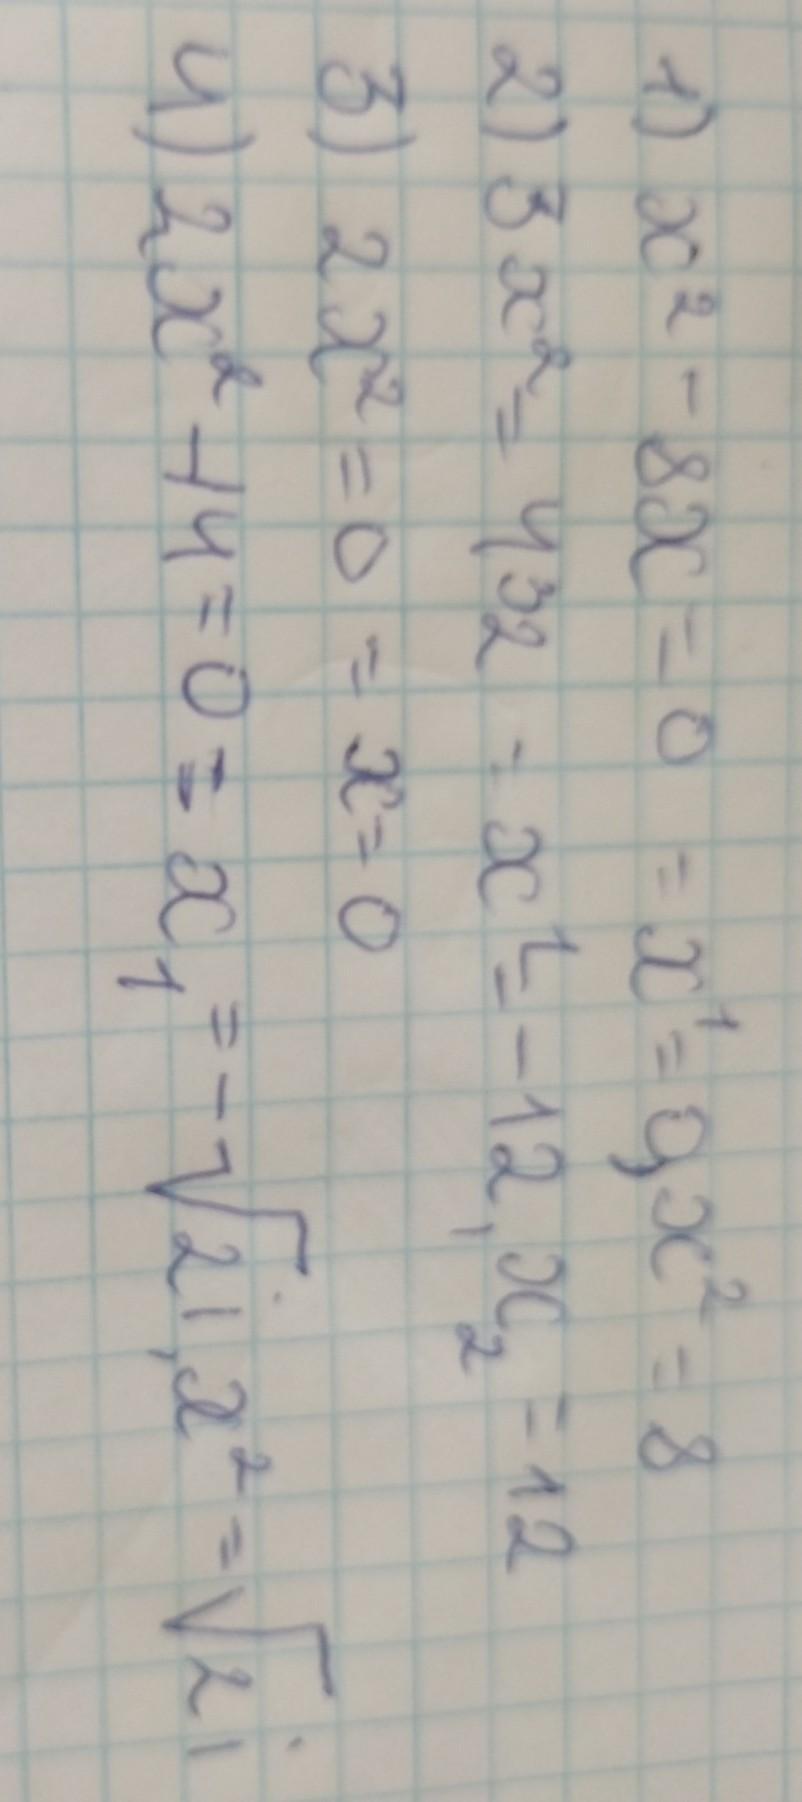 1) x² - 8x = 0 = x¹ = 0, x² = 8
2) 3x² = 432 = x¹ = -12, x₂ = 12
3) 2x² = 0 = x = 0
4) 2x² + 4 = 0 = x₁ = -√2i, x² = √2i